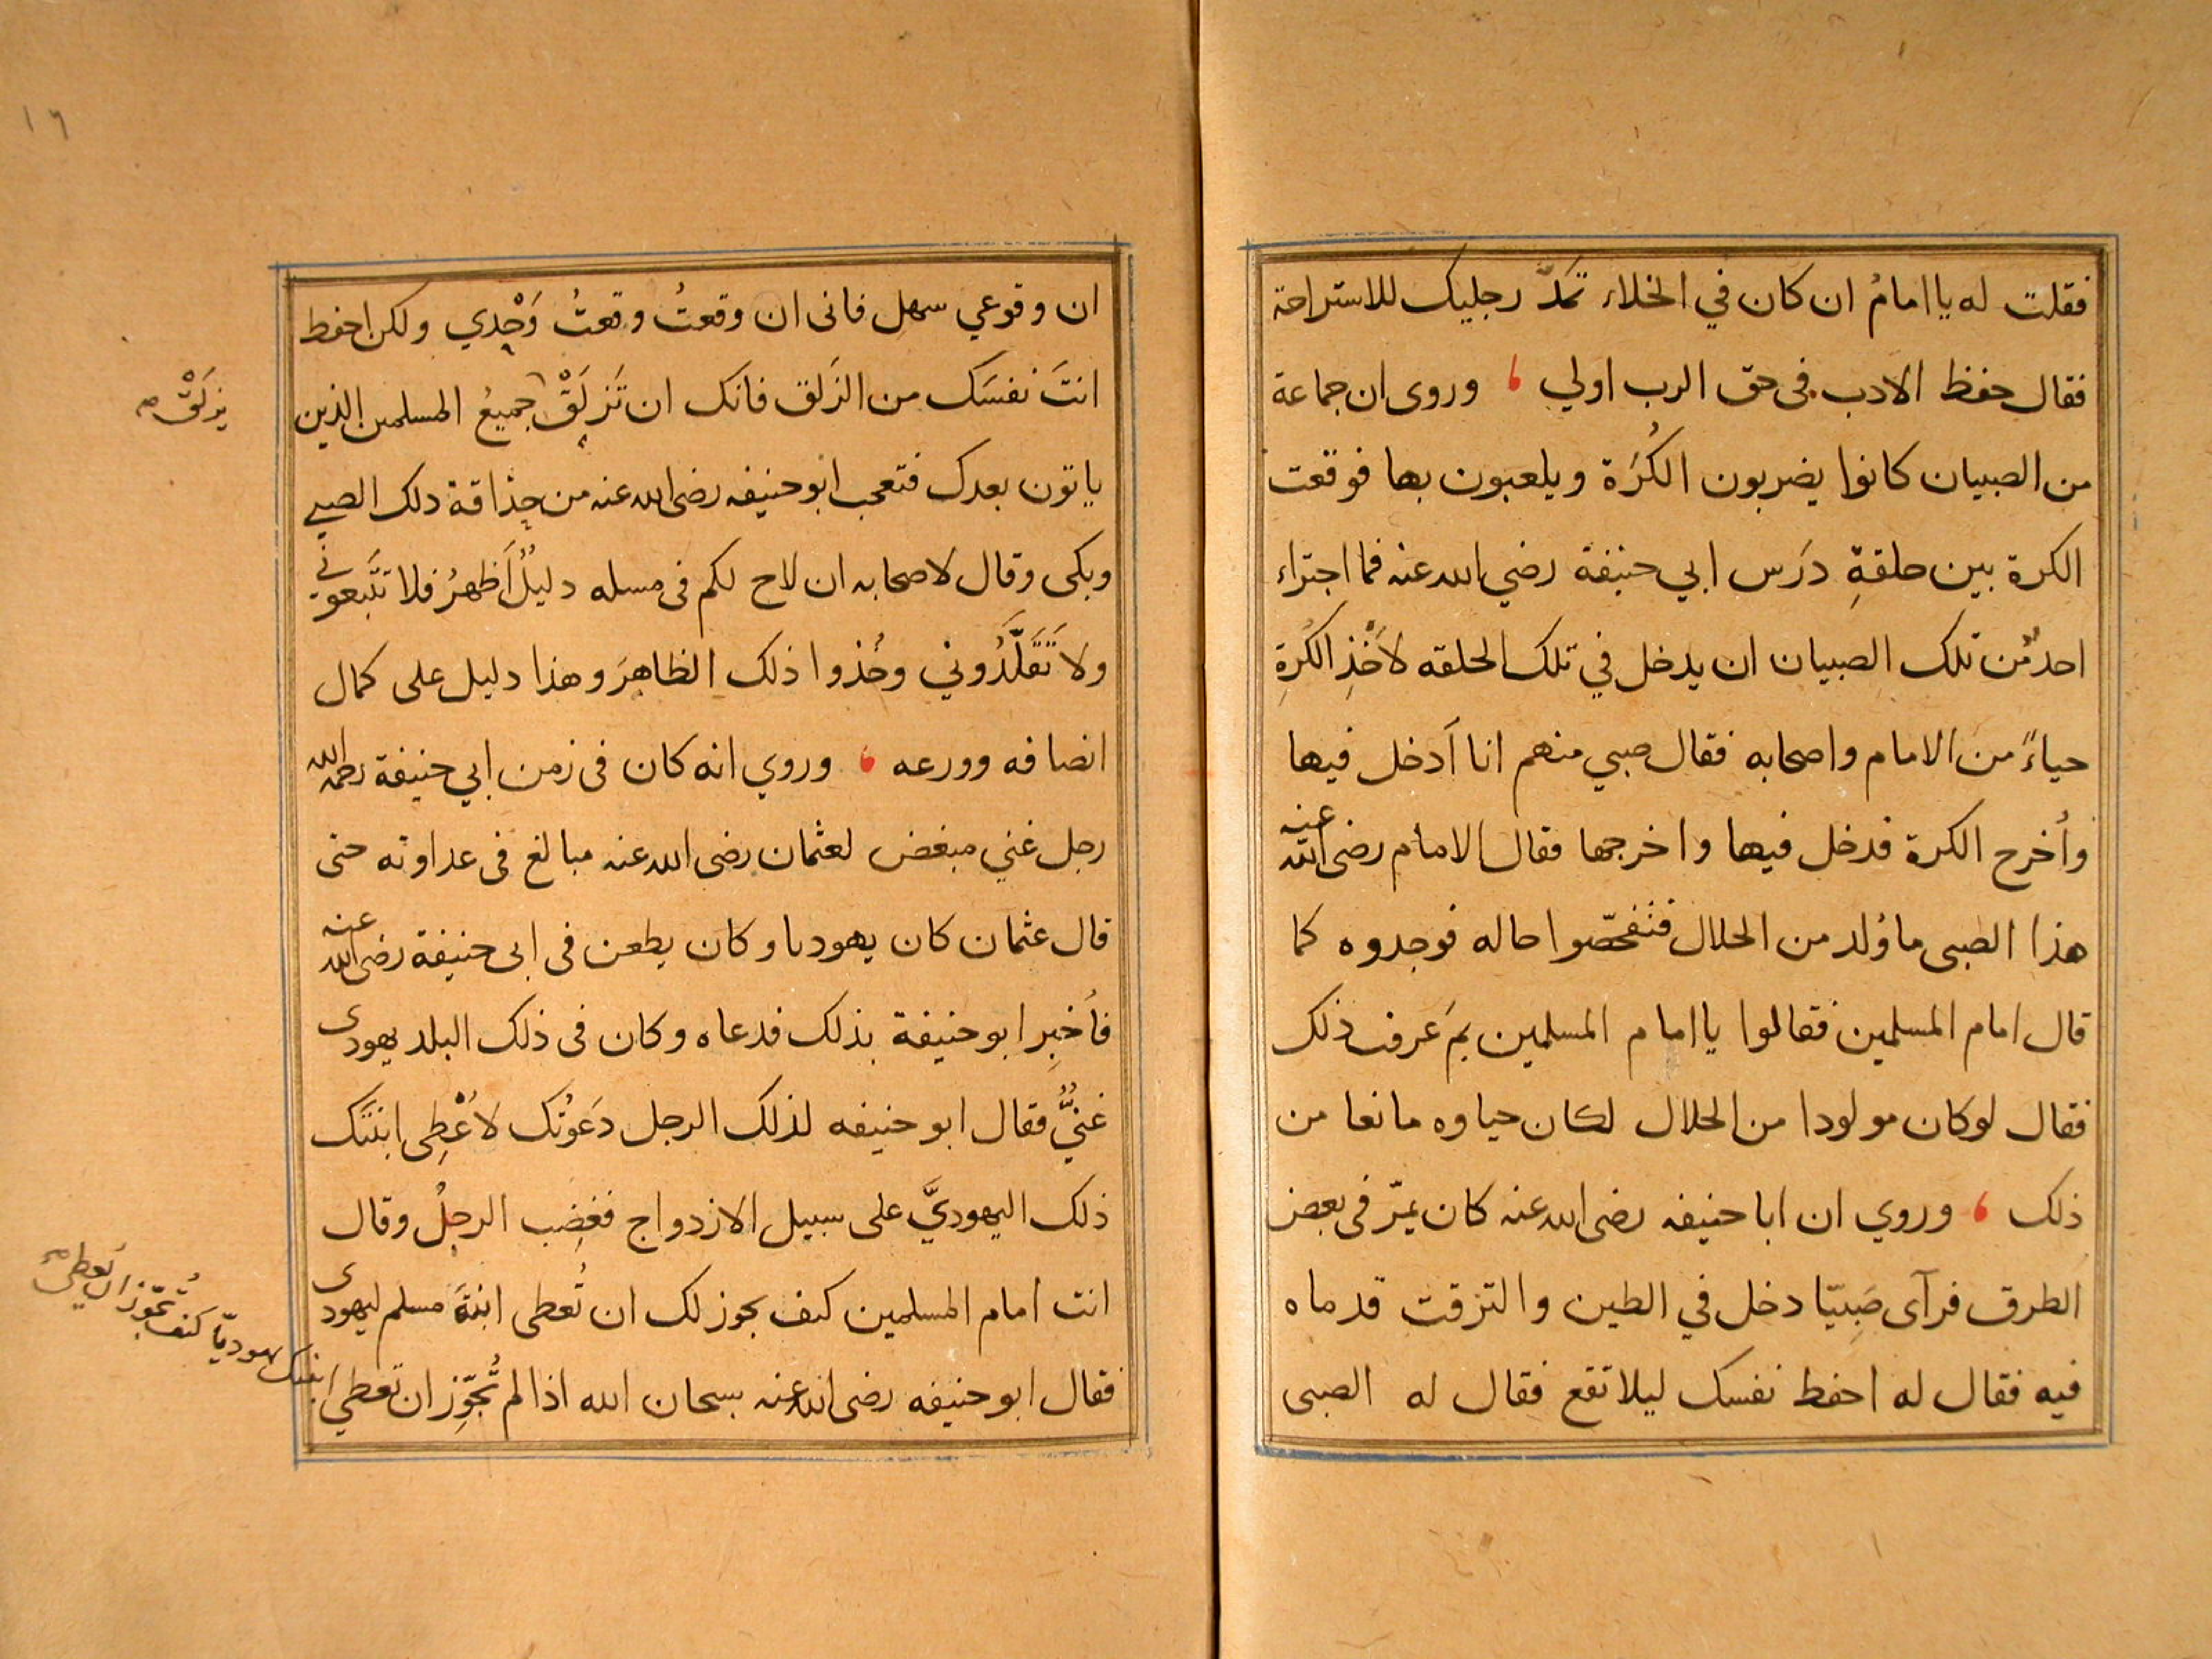 فقلت له يا امامُ ان كان في الخلاء تَمَدّ رجليك للاستراحة
فقال حفظ الادب فى حق الرب اولي ، وروى ان جماعة
من الصبيان كانوا يضربون الكُرَة ويلعبون بها فوقعت
الكرة بين حلقةِ دَرَس ابي حنيفة رضي الله عنه فما اجتراء
احدٌ من تلك الصبيان ان يدخل في تلك الحلقه لاَخْذِ الكُرَةِ
حياءً من الامام واصحابه فقال صبي منهم انا اَدخل فيها
وأخرج الكرة فدخل فيها واخرجها فقال الامام رضى الله عنه
هذا الصبى ما وُلد من الحلال فتفحّصوا حاله فوجدوه كما
قال امام المسلمين فقالوا يا امام المسلمين بمَ عرفت ذلك
فقال لوكان مولودا من الحلال لكان حياوه مانعا من
ذلك ، وروي ان ابا حنيفه رضى الله عنه كان يمرّ فى بعض
الطرق فرآى صَبِيّا دخل في الطين والتزقت قدماه
فيه فقال له احفط نفسك ليلا تقع فقال له الصبى
١٦
ان وقوعي سهل فانى ان وقعتُ وقعتُ وَحْدي ولكن احفط
انتَ نفسَك من الزَلق فانك ان تَزلَقْ جميعُ المسلمين الذين
يزلَقْ صح
ياتون بعدك فتعجب ابو حنيفه رضى الله عنه من حِذاقة ذلك الصبي
وبكى وقال لاصحابه ان لاح لكم فى مسله دليلٌ اَظهرُ فلا تتَّبعونى
ولا تَقَلَّدُوني وخُذوا ذلك الظاهرَ وهذا دليل على كمال
انصافه وورعه ، وروي انه كان فى زمن ابي حنيفة رحمه الله
رجل غني مبغض لعثمان رضى الله عنه مبالغ فى عداوته حتى
قال عثمان كان يهوديا وكان يطعن فى ابى حنيفة رضى الله عنه
فأخبِر ابو حنيفة بذلك فدعاه وكان فى ذلك البلد يهودى
غنيٌّ فقال ابو حنيفه لذلك الرجل دَعَوْتُك لاُعْطِى ابنتَك
ذلك اليهوديَّ على سبيل الازدواج فغضِب الرجلُ وقال
انت امام المسلمين كيف يجوز لك ان تُعطى ابنةَ مسلم ليهودى
فقال ابو حنيفه رضى الله عنه سبحان الله اذا لم تُجوِّز ان تعطي
ابنتك يهوديّا كيف تُجوّز ان يعطى صح